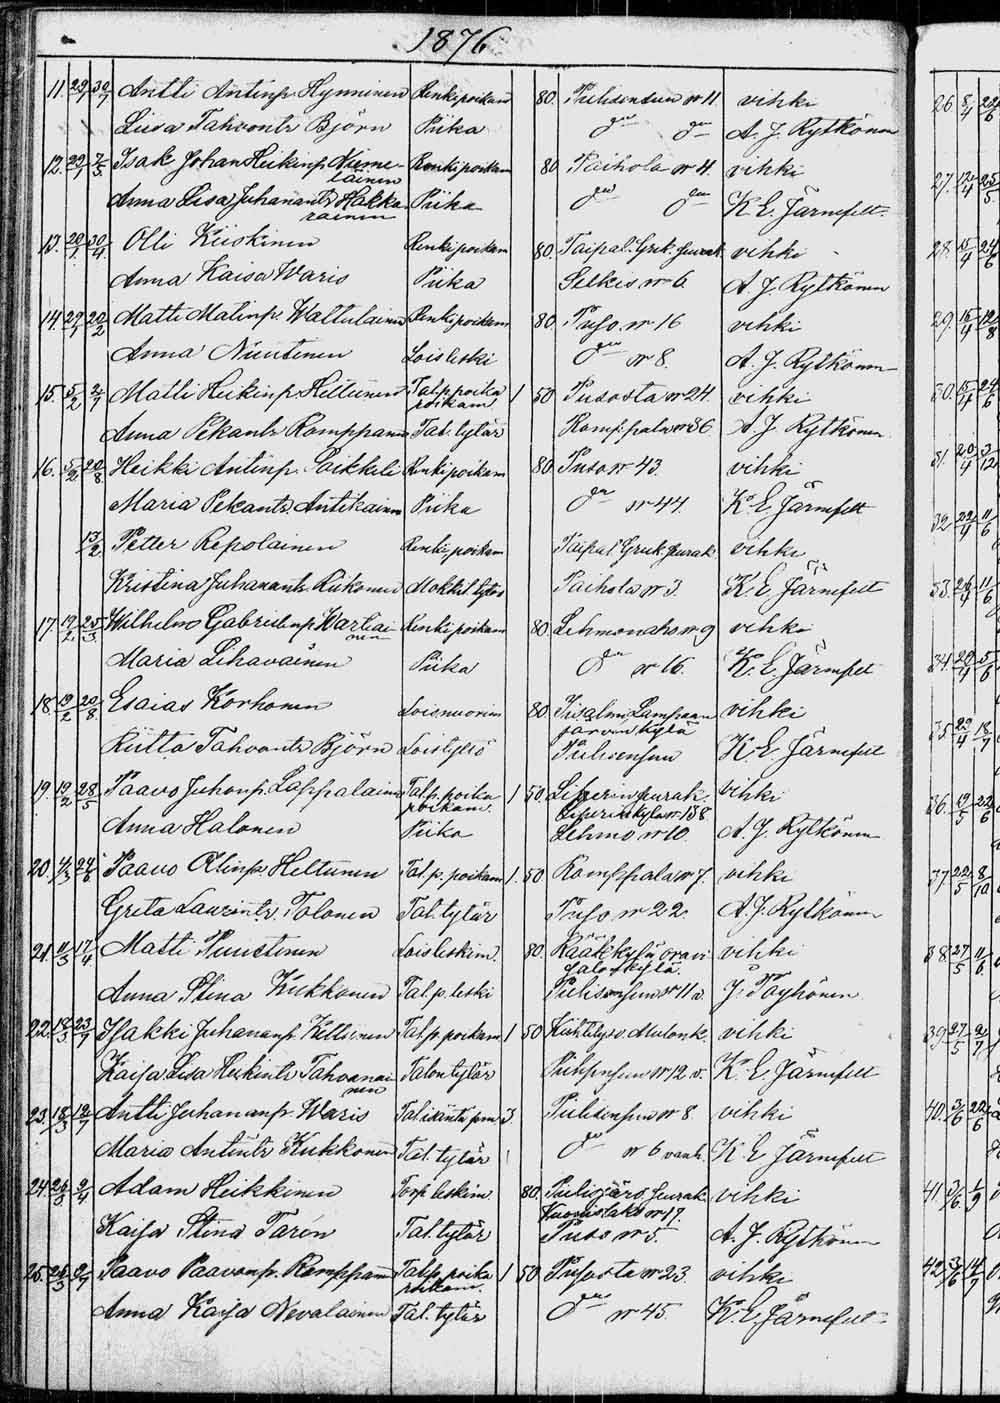 1876
11. 29/1 30/7 Antti Antinp. Hynninen Renki poikam 80. Puhdendun nr 11 vihki
Liisa Tahvontr Björn Piika do do A. J. Rytkönen
12. 29/1 7/5 Isak Johan Heikinp. Nieme- Renki poikam 80 Paihola nr 4. vihki
läinen
Anna Lisa Juhanantr Hakka- Piika do do K. E. Järnefelt.
rainen
13. 29/1 30/4 Olli Kiiskinen Renki poikam 80. Taipal. Grek. seurak. vihki
Anna Kaisa Waris Piika Selkie nr 6. A. J. Rytkönen
14. 29/1 20/2 Matti Matinp. Wattulainen Renki poikam 80. Puso nr 16 vihki
Anna Nuutinen Loisleski do nr 8. A. J. Rytkönen
15. 5/2 2/7 Matti Heikinp. Hiltunen Tal. p. poika 1 50 Pusosta nr 24. vihki
poikam.
Anna Pekantr Romppanen Tal. tytär Romppala nr 36 A. J. Rytkönen
16. 5/2 20/8 Heikki Antinp. Renki poikam 80. Puso nr 43. vihki
Maria Pekantr. Antikainen Piika do nr 44. K. E. Järnefelt
13/2 Petter Repolainen Renki poikam Taipal. Grek. seurak vihki
Kristina Juhanantr. Mökkil. tytär Paihola nr 3. K. E. Järnefelt
17. 19/2 25/3 Wilhelm Gabrielinp. Wartiai- Renki poikam 80. Lehmonaho nr 9 vihki
nen
Maria Lihavainen Piika do nr 16. K. E. Järnefelt
18. 19/2 20/8 Esaias Korhonen Loisnuorim 80. Iisalmi Lampaan- vihki
järven kylä
Riitta Tahvontr Björn Loistyttö K. E. Järnefelt
19. 19/2 28/5 Paavo Juhonp. Lappalainen Tal. p. poika 1 50. Liperin seurak. vihki
poikam. Liperinkylä nr 138
Anna Halonen Piika Lehmo nr 10. A. J. Rytkönen
20. 4/3 24/6 Paavo Ollinp. Heltunen Tal. p. poikam 1. 50 Romppala nr 7. vihki
Greta Laurintr. Tolonen Tal. tytär Puso nr 22. A. J. Rytkönen
21. 11/3 17/4 Matti Puustinen Loisleskim. 80. Rääkkylän oravi- vihki
salon kylä.
Anna Stina Kukkonen Tal. p. leski nr 11 v. J. Pöyhönen
22. 18/3 23/7 Isakki Juhananp. Tal. p. poikam. 1 50 vihki
Kaisa Lisa Heikintr Tahvanai- Talon tytär nr 12 v. K. E. Järnefelt
nen
23. 18/3 12/7 Antti Juhananp. Waris Tal. isäntä pm 3 nr 8 vihki
Maria Antintr Kukkonen Tal. tytär do nr 6 vanh. K. E. Järnefelt
24. 26/3 2/4 Adam Heikkinen Torp. leskim. 80. seurak. vihki
nr 17
Kaisa Stina Taren Tal. tytär Puso nr 5. A. J. Rytkönen
25. 26/3 2/7 Paavo Paavonp. Romppanen Tal. p. poika 1 50 Pusosta nr 23. vihki
poikam.
Anna Kaisa Nevalainen Tal. tytär do nr 45. K. E. Järnefelt
26 8/4 22/6
27. 12/4 25/5
28. 15/4 24/6
29. 15/4 12/8
30. 15/4 24/6
31. 20/4 3/12
32 22/4 11/6
33. 24/4 11/6
34. 29/4 5/6
35 29/4 18/7
36. 19/5 22/6
37 22/5 8/10
38. 27/5 11/6
39. 27/5 2/7
40. 3/6 22/6
41. 3/6 1/9
42. 3/6 14/7